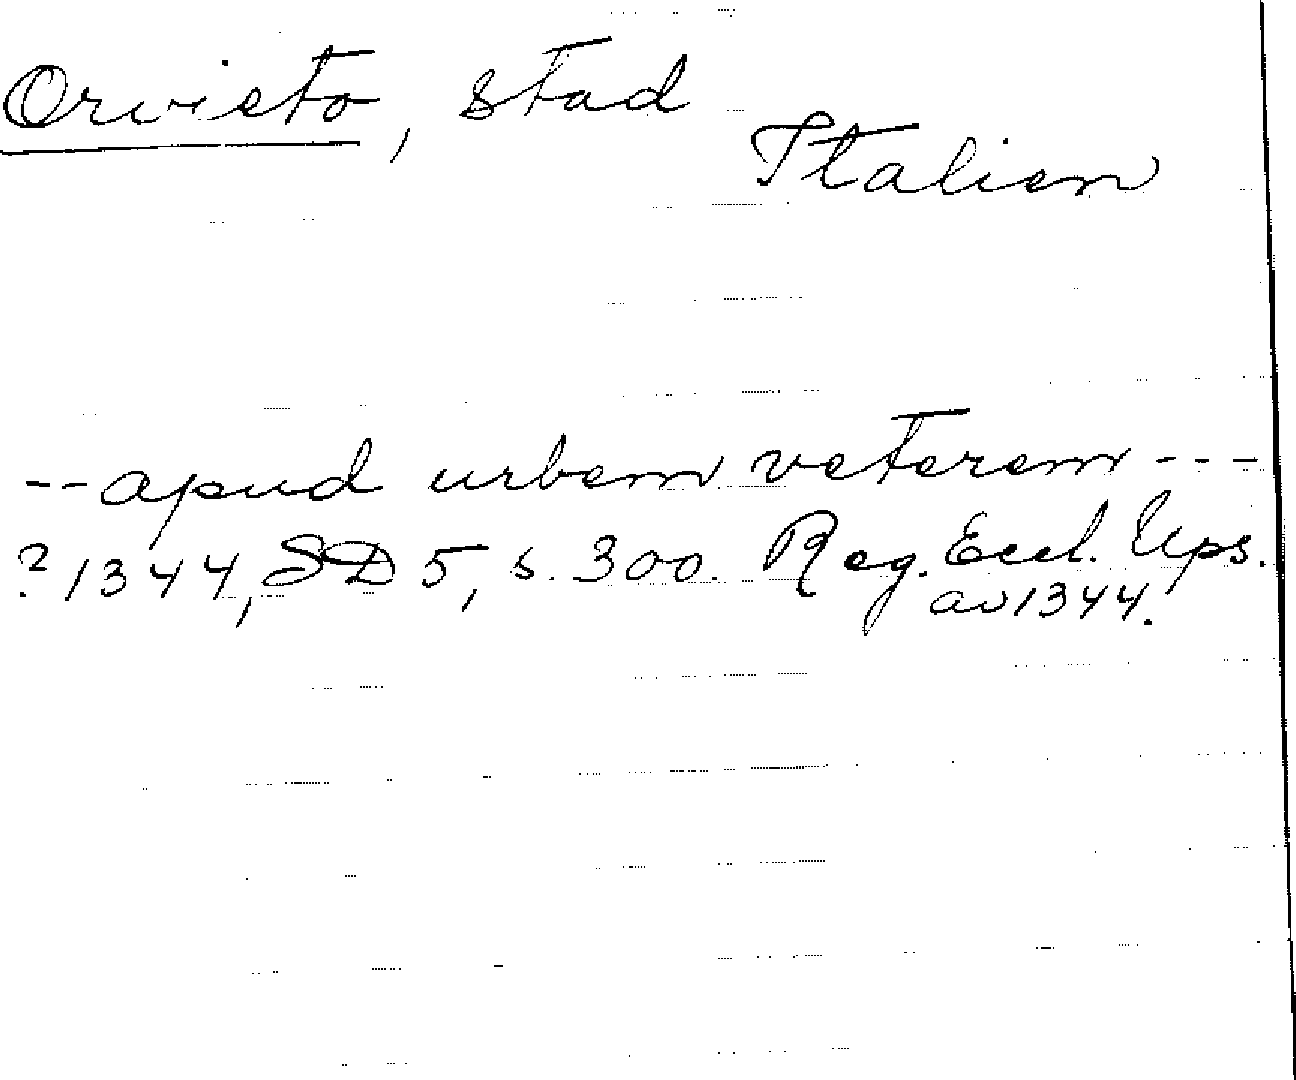 Orvieto, stad
Italien
-- apud urbem veterem ---
? 1344, SD 5, s. 300. Reg. Eccl. Ups.
av 1344.